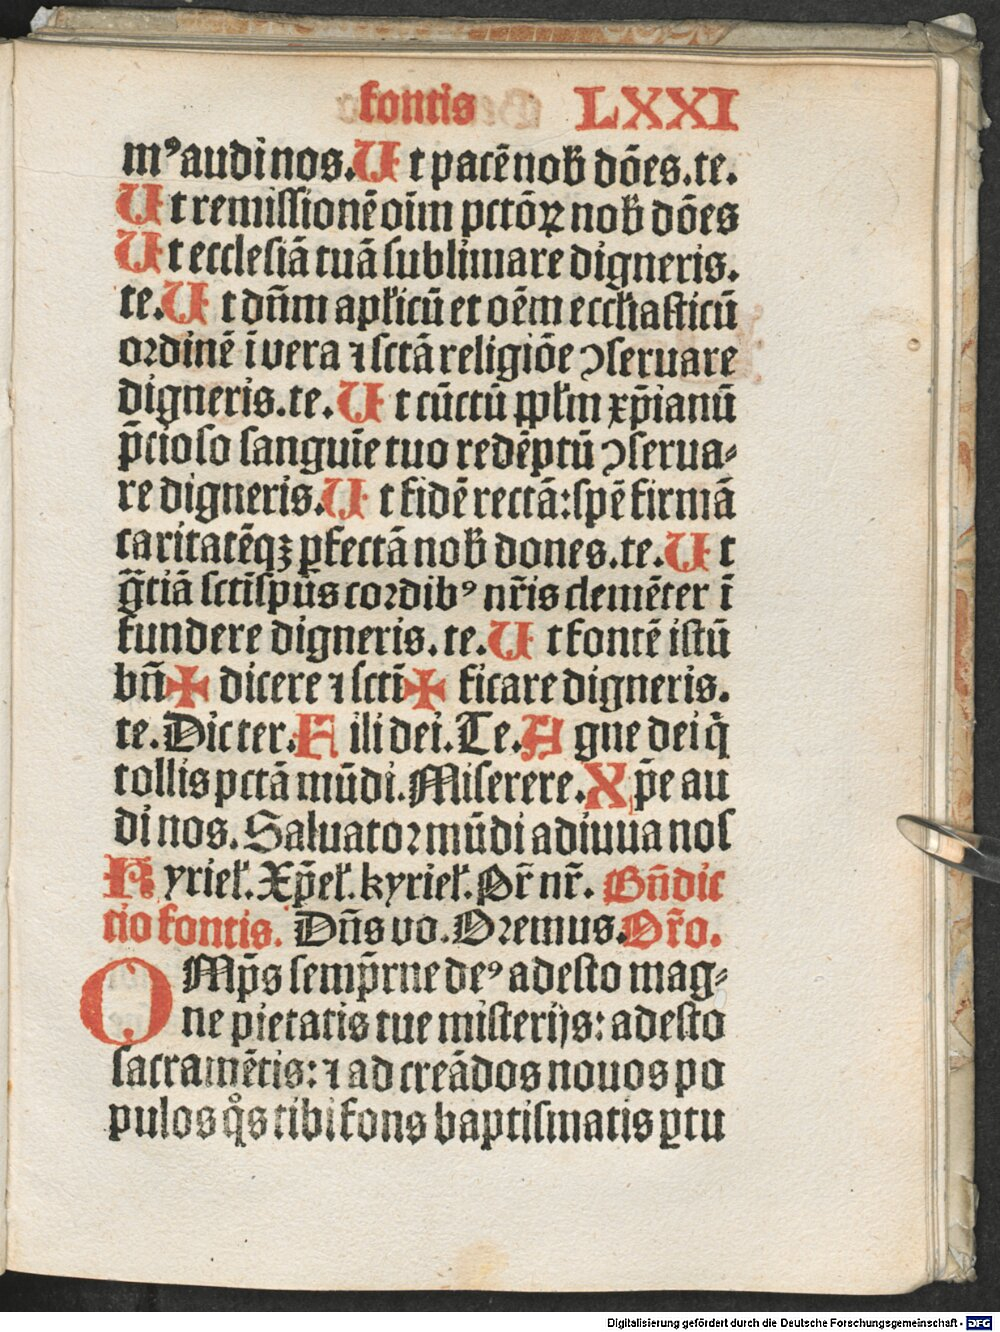 fontis LXXI
mꝰ audi nos. Ut pacē nob̄ dōes. te.
Ut remissionē oīm pctōꝝ nob̄ dōes
Ut ecclesiā tuā sublimare digneris.
te. Ut dn̄m apl̄icū et oēm eccl̄iasticū
ordinē ī vera ⁊ sctā religiōe ꝯseruare
digneris. te. Ut cūctū ppl̄m xp̄ianū
p̄cioso sanguīe tuo redēptū ꝯserua⸗
re digneris. Ut fidē rectā: spē firmā
caritatēqꝫ ꝑfectā nob̄ dones. te. Ut
gr̄tiā sctī sp̄us cordibꝰ nr̄is clemēter ī
fundere digneris. te. Ut fontē istū
bn̄ ✠ dicere ⁊ sctī ✠ ficare digneris.
te. Dic ter. Fili dei. Te. Agne dei q̄
tollis pctā mūdi. Miserere. Xp̄e au
di nos. Saluator mūdi adiuua nos
Kyriel̄. Xp̄el̄. kyriel̄. Pr̄ nr̄. Bn̄dic
tio fontis. Dn̄s vo. Oremus. Or̄o.
OMp̄s semp̄rne deꝰ adesto mag⸗
ne pietatis tue misterijs: adesto
sacramētis: ⁊ ad creādos nouos po
pulos qͦs tibi fons baptismatis ꝑtu
Digitalisierung gefördert durch die Deutsche Forschungsgemeinschaft - DFG